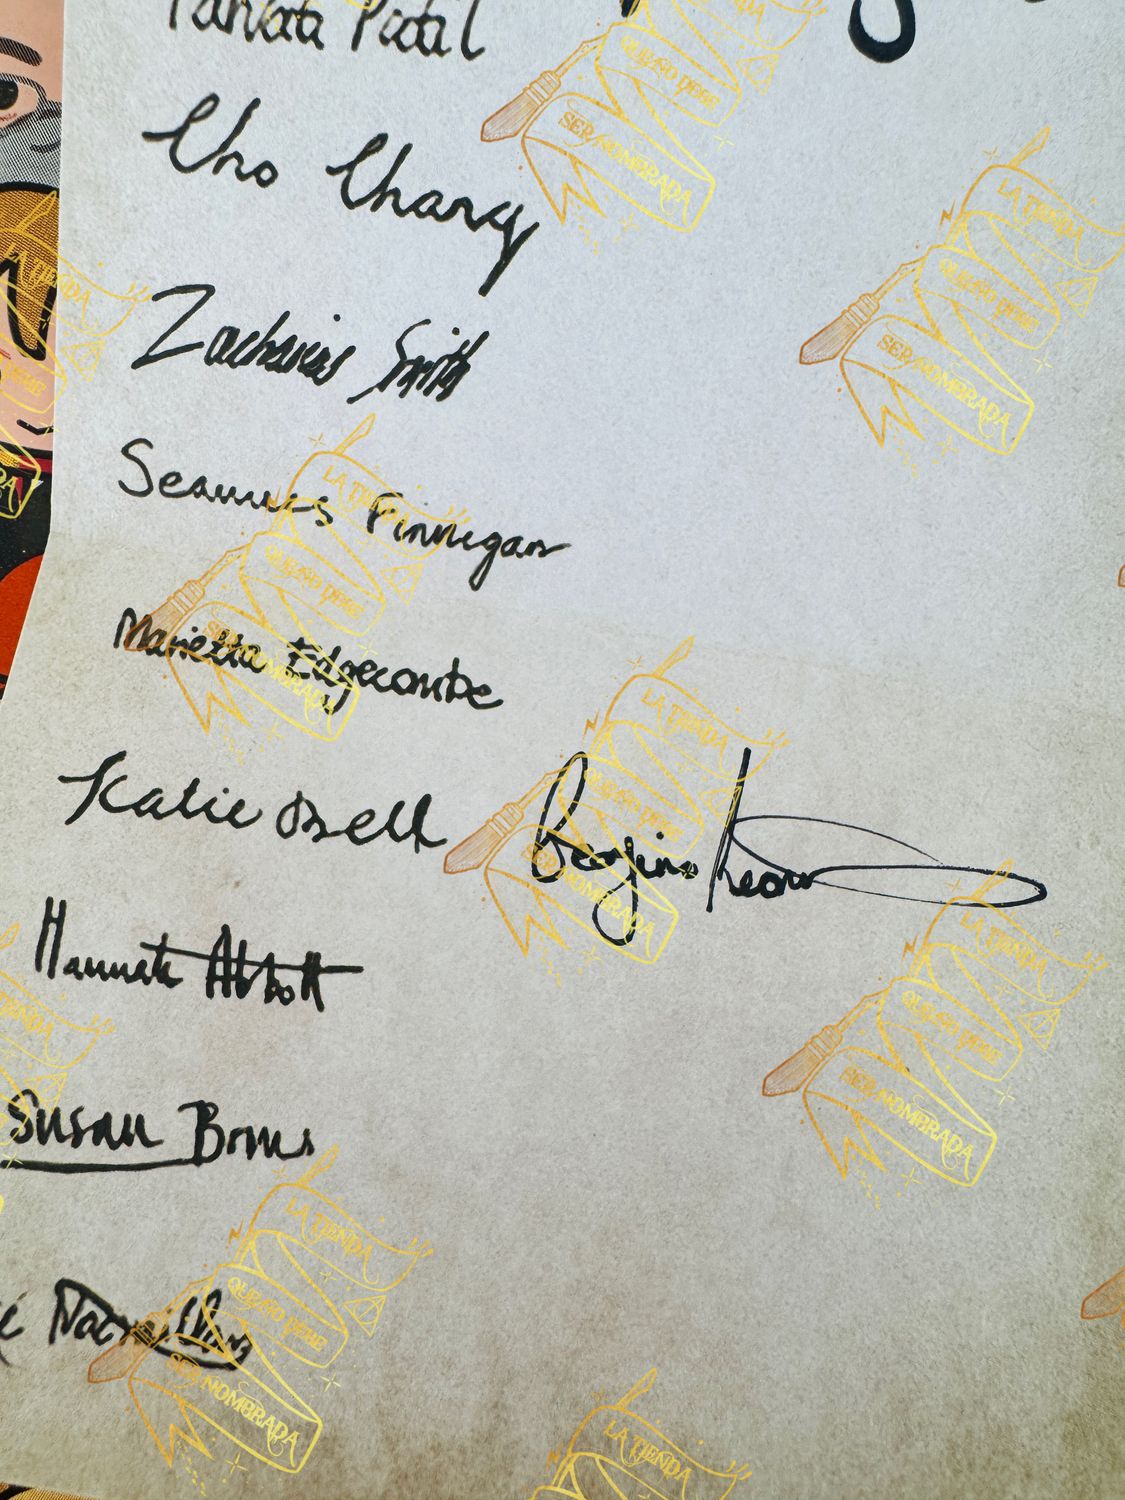 Patil
Cho Chang
Zacharias Smith
Seamus Finnegan
Marietta Edgecombe
Katie Bell
Hannah Abbott
Susan Bones
LA TIENDA
QUE NO DEBE
SER NOMBRADA
LA TIENDA
QUE NO DEBE
SER NOMBRADA
LA TIENDA
QUE NO DEBE
SER NOMBRADA
LA TIENDA
QUE NO DEBE
SER NOMBRADA
LA TIENDA
QUE NO DEBE
SER NOMBRADA
LA TIENDA
QUE NO DEBE
SER NOMBRADA
LA TIENDA